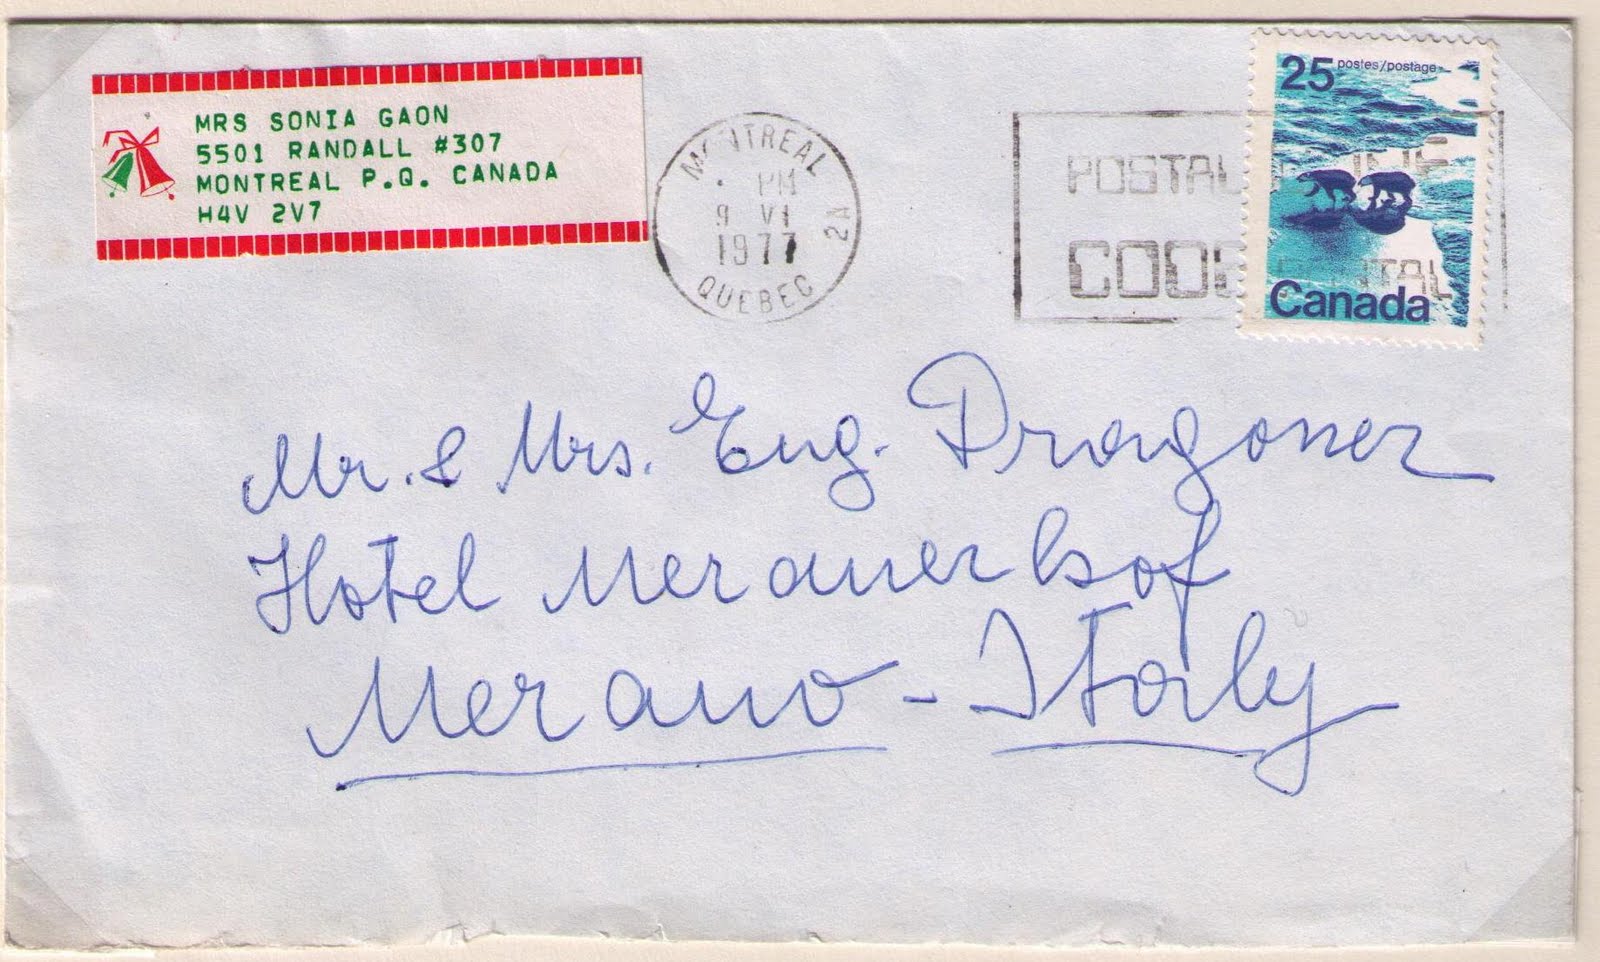 MRS SONIA GAON
5501 RANDALL #307
MONTREAL P.Q. CANADA
H4V 2V7
MONTREAL
PM
9 VI
1977
2A
QUEBEC
POSTAL
CODE POSTAL
25 postes/postage
Canada
Mr. & Mrs. Eug. Dragoner
Hotel Meranerhof
Merano - Italy